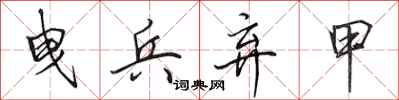 曳兵弃甲
词典网